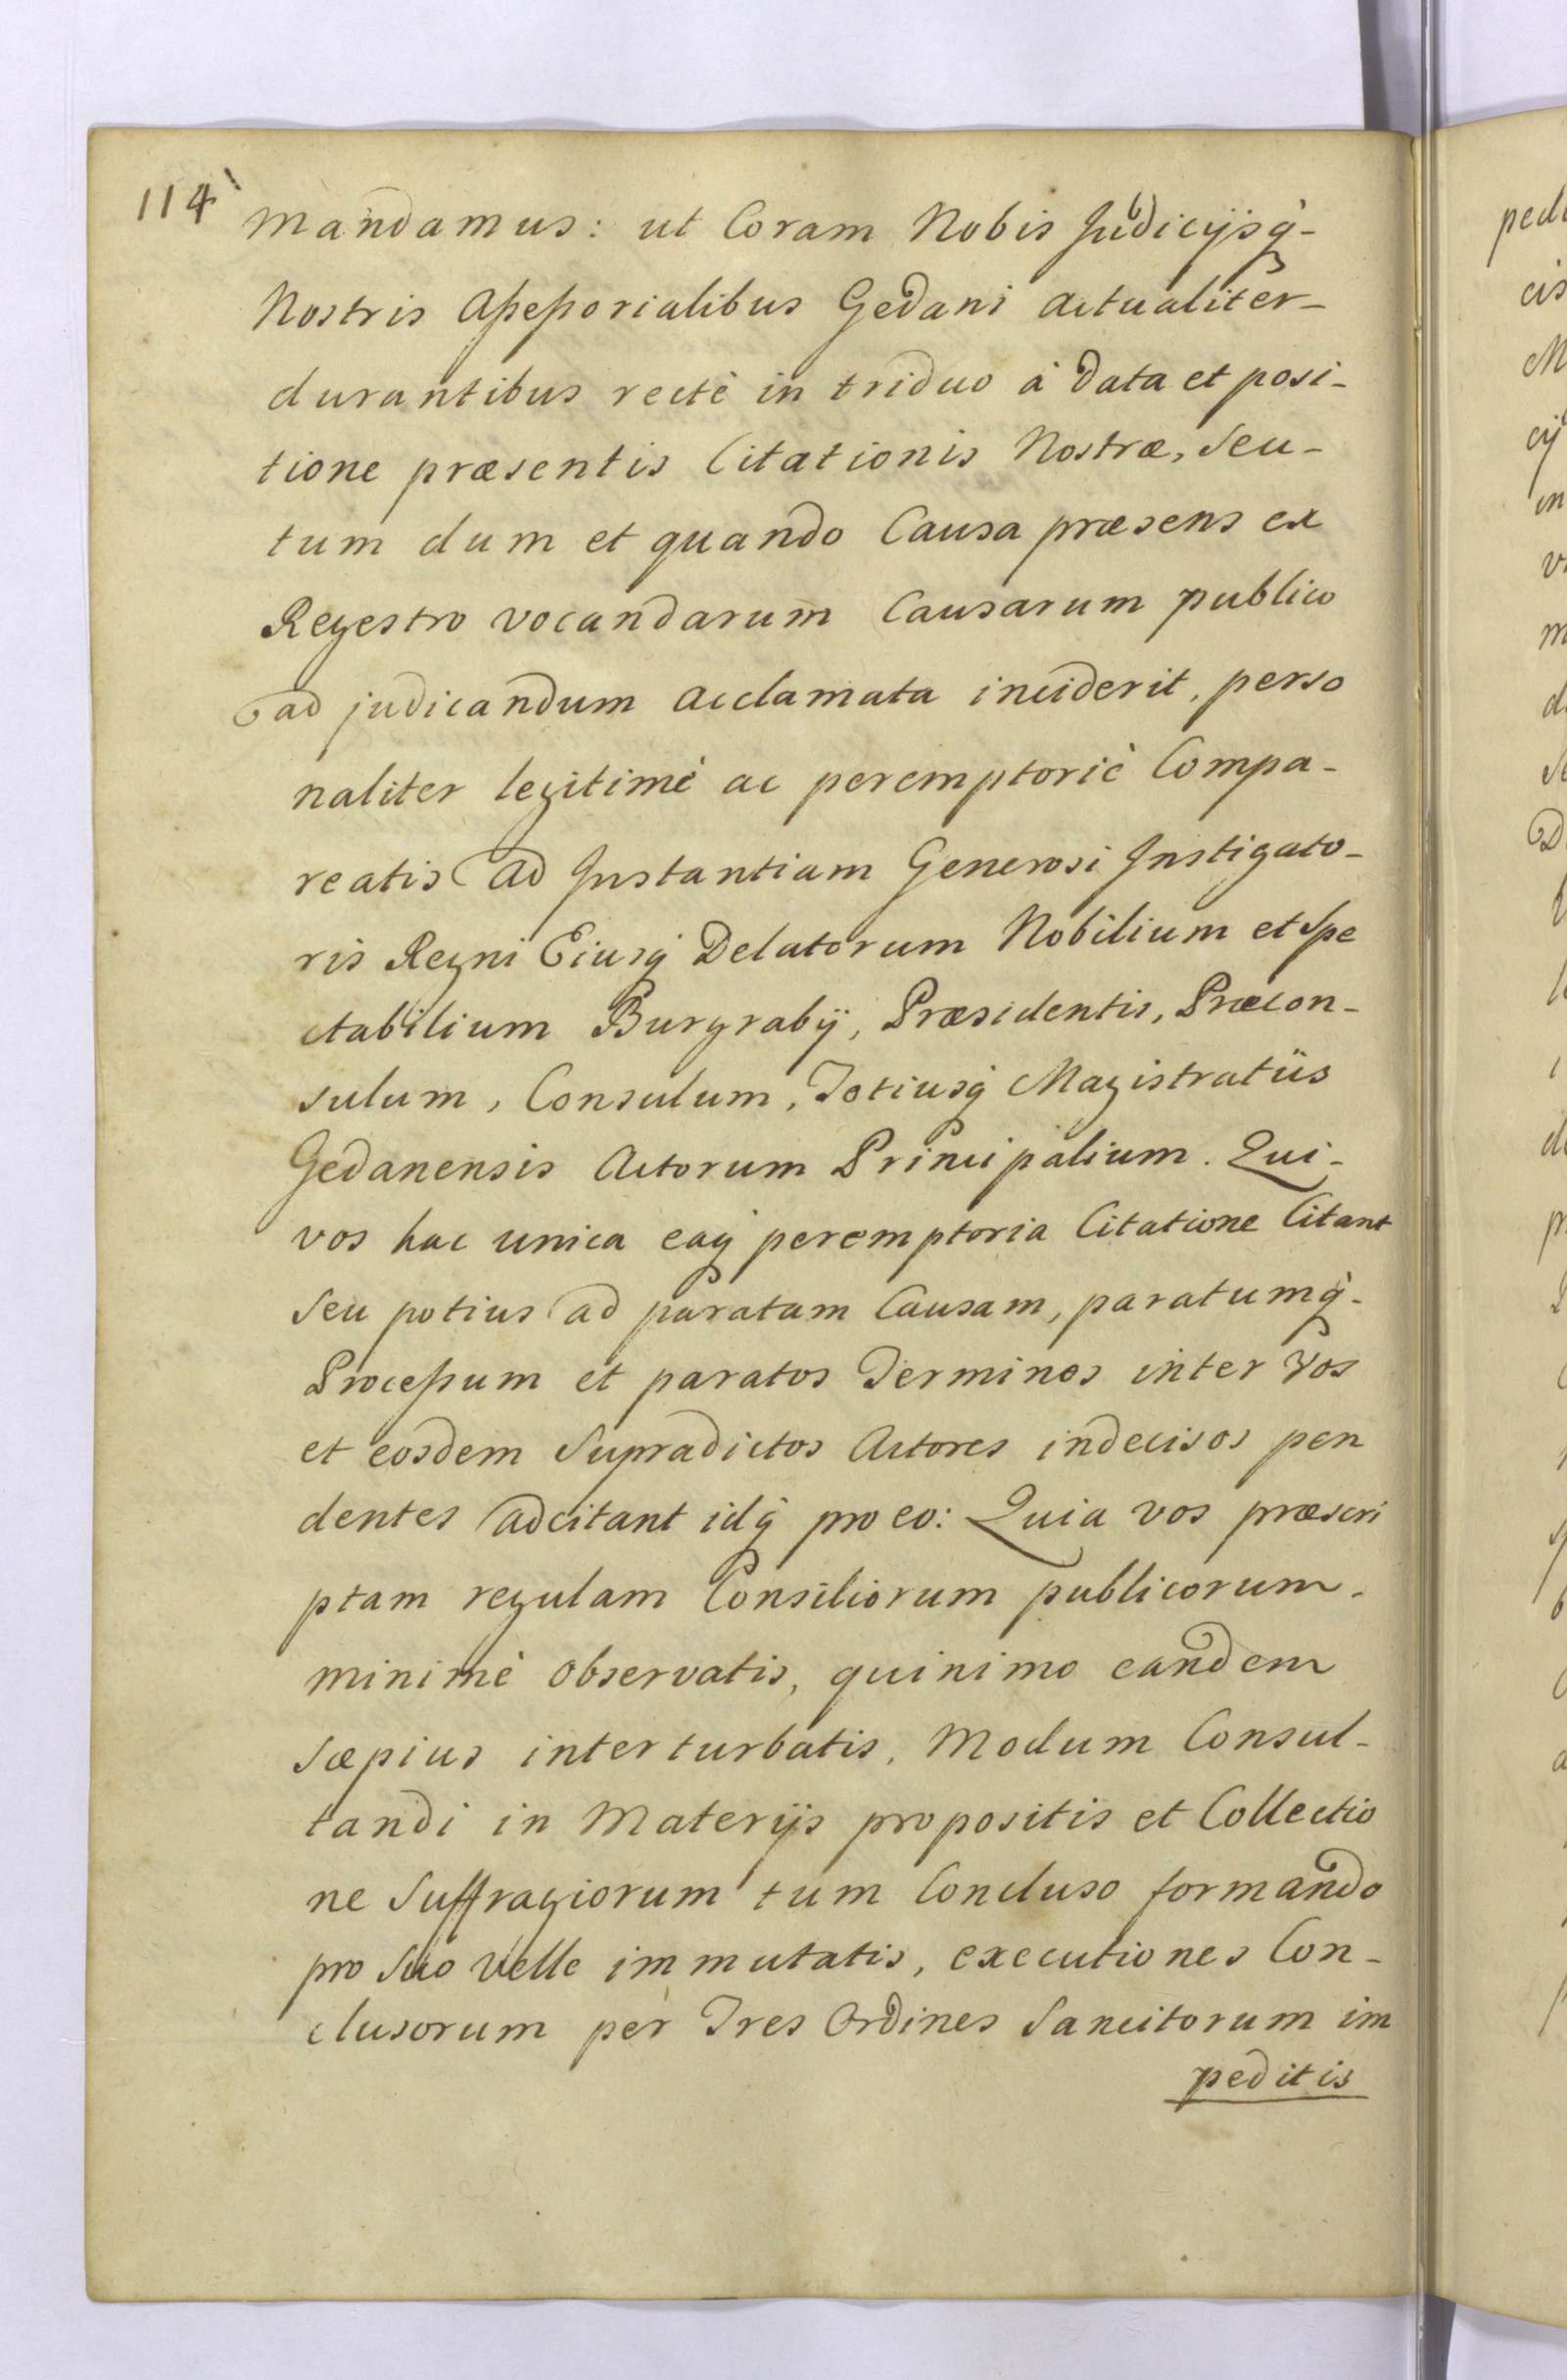 114
Mandamus: ut Coram Nobis Judicijsq̀-
Nostris Assessorialibus Gedani actualiter-
durantibus rectè in triduo à data et posi-
tione præsentis Citationis Nostræ, seu-
tum dum et quando Causa præsens ex
Regestro vocandarum Causarum publico
ad judicandum acclamata inciderit, perso
naliter legitimè ac peremptoriè Compa-
reatis ad Instantiam Generosi Instigato-
ris Regni Eiusq̀ Delatorum Nobilium et Spe
ctabilium Burgrabij, Præsidentis, Præcon-
sulum, Consulum, Totiusq̀ Magistratûs
Gedanensis Actorum Principalium. Qui-
vos hac unica eaq̀ peremptoria Citatione Citant
seu potius ad paratam Causam, paratumq̀-
Processum et paratos Terminos inter Vos
et eosdem Supradictos Actores indecisos pen
dentes adcitant idq̀ pro eo: Quia vos præscri
ptam regulam Consiliorum publicorum-
minimè observatis, quinimo eandem
sæpius interturbatis, Modum Consul-
tandi in Materijs propositis et Collectio
ne Suffragiorum tum Concluso formando
pro suo velle immutatis, executiones Con-
clusorum per Tres Ordines Sancitorum im
peditis
pedi
cis
M
cij
in